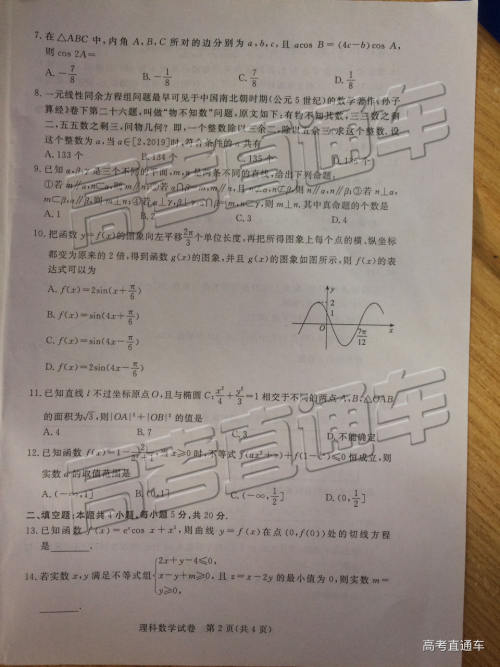 7. 在△ABC 中,内角 A,B,C 所对的边分别为 a,b,c,且 acos B=(4c-b)cos A,
则 cos 2A=
A. -7/8 B. -1/8 C. 7/8 D. 1/8
8. 一元线性同余方程组问题最早可见于中国南北朝时期(公元5世纪)的数学著作《孙子
算经》卷下第二十六题,叫做“物不知数”问题,原文如下:有物不知其数,三三数之剩
二,五五数之剩三,问物几何?即,一个整数除以三余二,除以五余三,求这个整数.设
这个整数为 a,当 a∈[2,2019]时,符合条件的 a 共有
A. 133 个 B. 134 个 C. 135 个
9. 已知 α,β,γ 是三个不同的平面,m,n 是两条不同的直线,给出下列命题:
A. 1 B. 2 C. 3 D. 4
10. 把函数 y=f(x)的图象向左平移2π/3个单位长度,再把所得图象上每个点的横、纵坐标
都变为原来的 2 倍,得到函数 g(x)的图象,并且 g(x)的图象如图所示,则 f(x)的表
达式可以为
A. f(x)=2sin(x+π/6)
B. f(x)=sin(4x+π/6)
C. f(x)=sin(4x-π/6)
D. f(x)=2sin(4x-π/6)
y
2
1
O
7π/12
x
11. 已知直线 l 不过坐标原点 O,且与椭圆 C:x²/4+y²/3=1 相交于不同的两点 A,B,△OAB
的面积为√3,则|OA|²+|OB|² 的值是
A. 4 B. 7 C. 3 D. 不能确定
12. 已知函数 f(x)=1- 当 x≥0 时,不等式 恒成立,则
实数 a 的取值范围是
A. (-∞,1] B. (0,1] C. (-∞,1/2] D. (0,1/2]
二、填空题:本题共 4 小题,每小题 5 分,共 20 分.
13. 已知函数 f(x)=eˣcos x+x²,则曲线 y=f(x)在点(0,f(0))处的切线方程
是 .
14. 若实数 x,y 满足不等式组{2x+y-4≤0, x-y+m≥0, y≥0, 且 z=x-2y 的最小值为 0,则实数 m=
.
理科数学试卷 第 2 页(共 4 页)
高考直通车
高考直通车
高考直通车
高考直通车